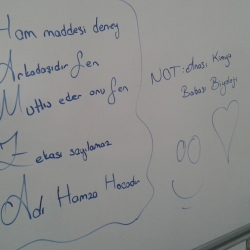 Ham maddesi deney
Arkadaşıdır fen
Mutlu eder onu fen
Zekası sayılamaz
Adı Hamza Hocadır
NOT: Anası Kimya
Babası Biyoloji